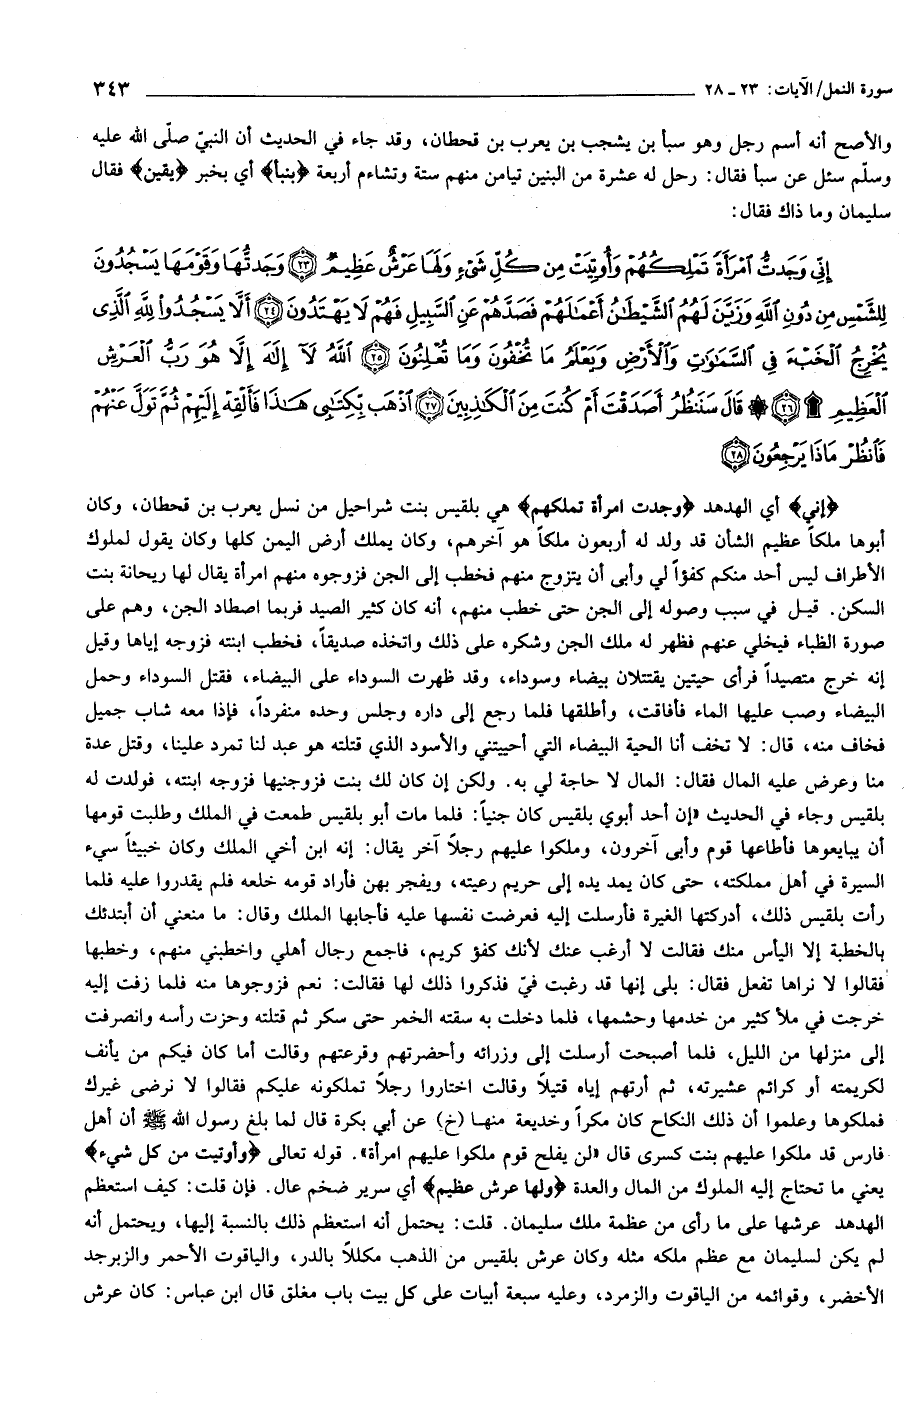 سورة النمل/ الآيات: ٢٣ ـ ٢٨ ٣٤٣
والأصح أنه أسم رجل وهو سبأ بن يشجب بن يعرب بن قحطان، وقد جاء في الحديث أن النبيّ صلّى الله عليه
وسلّم سئل عن سبأ فقال: رحل له عشرة من البنين تيامن منهم ستة وتشاءم أربعة ﴿بنبأ﴾ أي بخبر ﴿يقين﴾ فقال
سليمان وما ذاك فقال:
إِنِّي وَجَدتُّ ٱمْرَأَةً تَمْلِكُهُمْ وَأُوتِيَتْ مِن كُلِّ شَىْءٍ وَلَهَا عَرْشٌ عَظِيمٌ ٢٣ وَجَدتُّهَا وَقَوْمَهَا يَسْجُدُونَ
لِلشَّمْسِ مِن دُونِ ٱللَّهِ وَزَيَّنَ لَهُمُ ٱلشَّيْطَٰنُ أَعْمَٰلَهُمْ فَصَدَّهُمْ عَنِ ٱلسَّبِيلِ فَهُمْ لَا يَهْتَدُونَ ٢٤ أَلَّا يَسْجُدُوا۟ لِلَّهِ ٱلَّذِى
يُخْرِجُ ٱلْخَبْءَ فِى ٱلسَّمَٰوَٰتِ وَٱلْأَرْضِ وَيَعْلَمُ مَا تُخْفُونَ وَمَا تُعْلِنُونَ ٢٥ ٱللَّهُ لَآ إِلَٰهَ إِلَّا هُوَ رَبُّ ٱلْعَرْشِ
ٱلْعَظِيمِ ۩ ٢٦ ۞ قَالَ سَنَنظُرُ أَصَدَقْتَ أَمْ كُنتَ مِنَ ٱلْكَٰذِبِينَ ٢٧ ٱذْهَب بِّكِتَٰبِى هَٰذَا فَأَلْقِهْ إِلَيْهِمْ ثُمَّ تَوَلَّ عَنْهُمْ
فَٱنظُرْ مَاذَا يَرْجِعُونَ ٢٨
﴿إني﴾ أي الهدهد ﴿وجدت امرأة تملكهم﴾ هي بلقيس بنت شراحيل من نسل يعرب بن قحطان، وكان
أبوها ملكاً عظيم الشأن قد ولد له أربعون ملكاً هو آخرهم، وكان يملك أرض اليمن كلها وكان يقول لملوك
الأطراف ليس أحد منكم كفؤاً لي وأبى أن يتزوج منهم فخطب إلى الجن فزوجوه منهم امرأة يقال لها ريحانة بنت
السكن. قيل في سبب وصوله إلى الجن حتى خطب منهم، أنه كان كثير الصيد فربما اصطاد الجن، وهم على
صورة الظباء فيخلي عنهم فظهر له ملك الجن وشكره على ذلك واتخذه صديقاً، فخطب ابنته فزوجه إياها وقيل
إنه خرج متصيداً فرأى حيتين يقتتلان بيضاء وسوداء، وقد ظهرت السوداء على البيضاء، فقتل السوداء وحمل
البيضاء وصب عليها الماء فأفاقت، وأطلقها فلما رجع إلى داره وجلس وحده منفرداً، فإذا معه شاب جميل
فخاف منه، قال: لا تخف أنا الحية البيضاء التي أحييتني والأسود الذي قتلته هو عبد لنا تمرد علينا، وقتل عدة
منا وعرض عليه المال فقال: المال لا حاجة لي به. ولكن إن كان لك بنت فزوجنيها فزوجه ابنته، فولدت له
بلقيس وجاء في الحديث «إن أحد أبوي بلقيس كان جنياً: فلما مات أبو بلقيس طمعت في الملك وطلبت قومها
أن يبايعوها فأطاعها قوم وأبى آخرون، وملكوا عليهم رجلاً آخر يقال: إنه ابن أخي الملك وكان خبيثاً سيء
السيرة في أهل مملكته، حتى كان يمد يده إلى حريم رعيته، ويفجر بهن فأراد قومه خلعه فلم يقدروا عليه فلما
رأت بلقيس ذلك، أدركتها الغيرة فأرسلت إليه فعرضت نفسها عليه فأجابها الملك وقال: ما منعني أن أبتدئك
بالخطبة إلا اليأس منك فقالت لا أرغب عنك لأنك كفؤ كريم، فاجمع رجال أهلي واخطبني منهم، وخطبها
فقالوا لا نراها تفعل فقال: بلى إنها قد رغبت فيّ فذكروا ذلك لها فقالت: نعم فزوجوها منه فلما زفت إليه
خرجت في ملأ كثير من خدمها وحشمها، فلما دخلت به سقته الخمر حتى سكر ثم قتلته وحزت رأسه وانصرفت
إلى منزلها من الليل، فلما أصبحت أرسلت إلى وزرائه وأحضرتهم وقرعتهم وقالت أما كان فيكم من يأنف
لكريمته أو كرائم عشيرته، ثم أرتهم إياه قتيلاً وقالت اختاروا رجلاً تملكونه عليكم فقالوا لا نرضى غيرك
فملكوها وعلموا أن ذلك النكاح كان مكراً وخديعة منها (خ) عن أبي بكرة قال لما بلغ رسول الله ﷺ أن أهل
فارس قد ملكوا عليهم بنت كسرى قال «لن يفلح قوم ملكوا عليهم امرأة». قوله تعالى ﴿وأوتيت من كل شيء﴾
يعني ما تحتاج إليه الملوك من المال والعدة ﴿ولها عرش عظيم﴾ أي سرير ضخم عال. فإن قلت: كيف استعظم
الهدهد عرشها على ما رأى من عظمة ملك سليمان. قلت: يحتمل أنه استعظم ذلك بالنسبة إليها، ويحتمل أنه
لم يكن لسليمان مع عظم ملكه مثله وكان عرش بلقيس من الذهب مكللاً بالدر، والياقوت الأحمر والزبرجد
الأخضر، وقوائمه من الياقوت والزمرد، وعليه سبعة أبيات على كل بيت باب مغلق قال ابن عباس: كان عرش